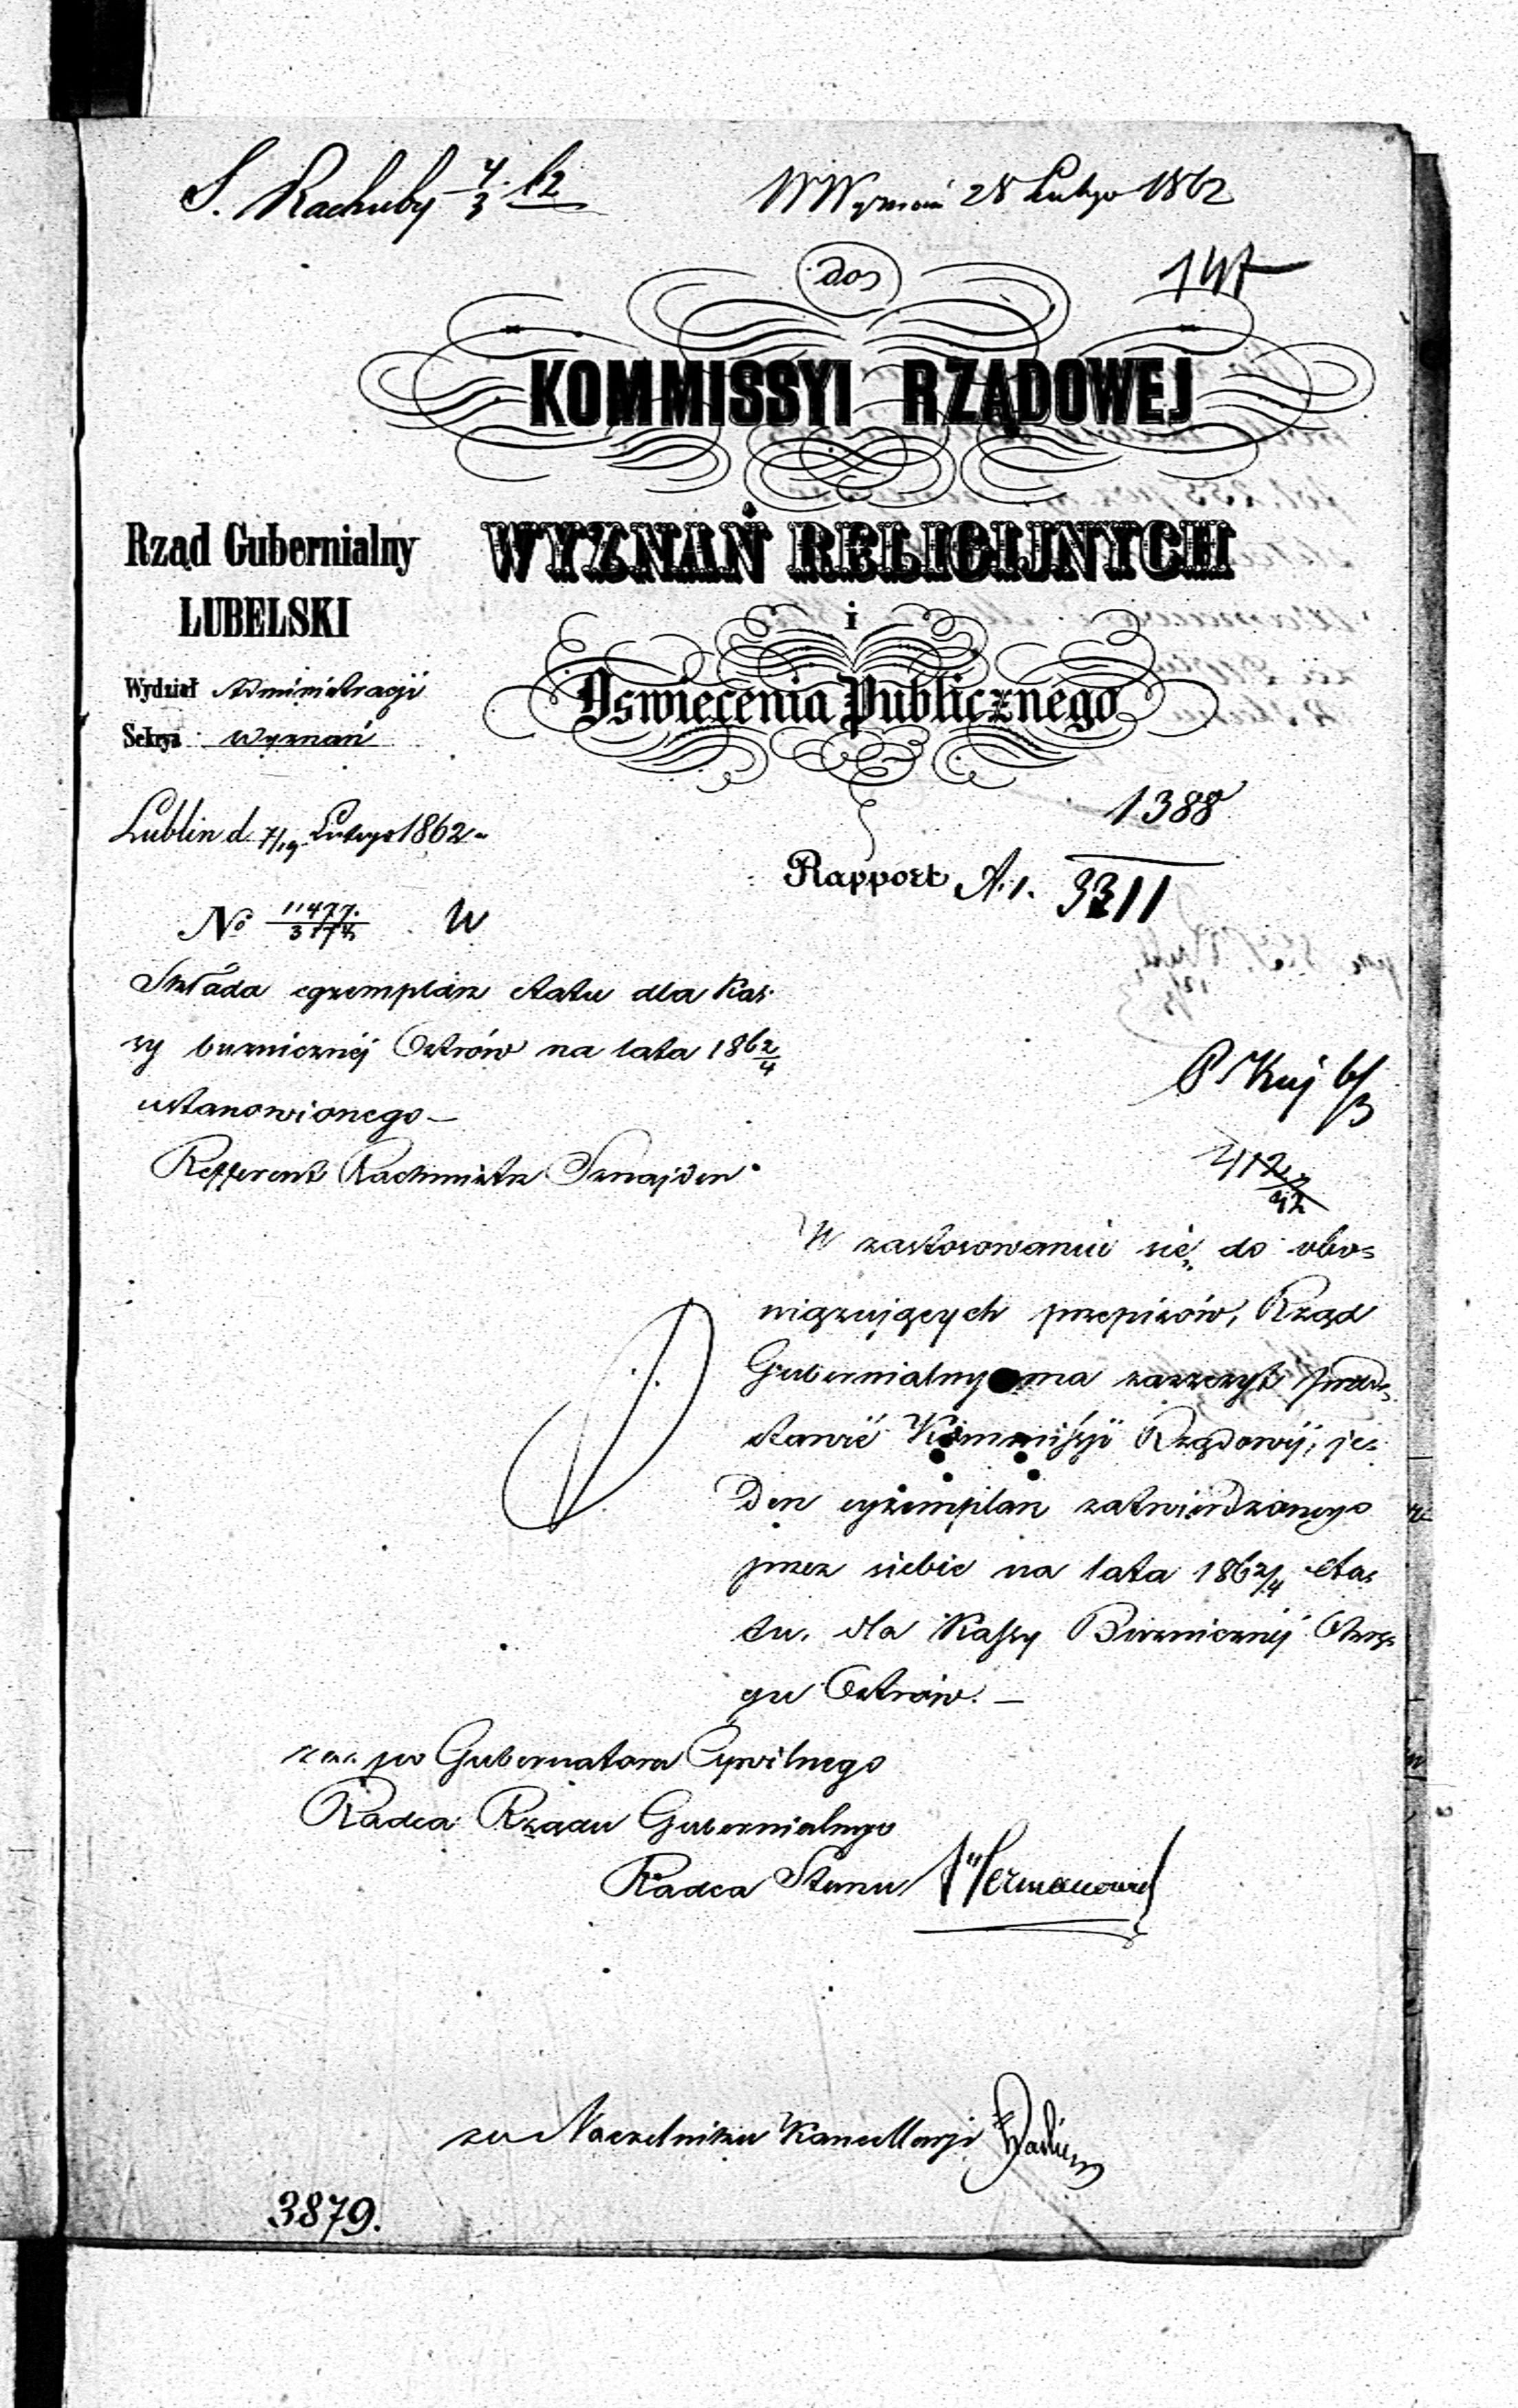 S. Rachuby 4/3 62
W Wyznań 28 Lutego 1862
147
do
KOMMISSYI RZĄDOWEJ
WYZNAŃ RELIGIJNYCH
i
Oświecenia Publicznego
Rząd Gubernialny
LUBELSKI
Wydział Administracji
Sekcya Wyznań
Lublin d. 7/19 Lutego 1862
1388
Rapport A. 1. 3311
No 11477. W
Składa egzemplarz etatu dla Kas-
sy bużnicznéj Ostrów na lata 186 2/4
ustanowionego —
Refferent Rachmistrz Sznajder
P. Kuj 6/3
W zastosowaniu się do obo-
wiązujących przepisów, Rząd
Gubernialny ma zaszczyt przed-
stawić Kommissyi Rządowéj, je-
den egzemplarz zatwierdzonego
przez siebie na lata 186 2/4 eta-
tu, dla Kassy Bużnicznéj Okrę-
gu Ostrów. —
po Gubernatora Cywilnego
Radca Rządu Gubernialnego
Radca Stanu
za Naczelnika Kancellaryi
3879.